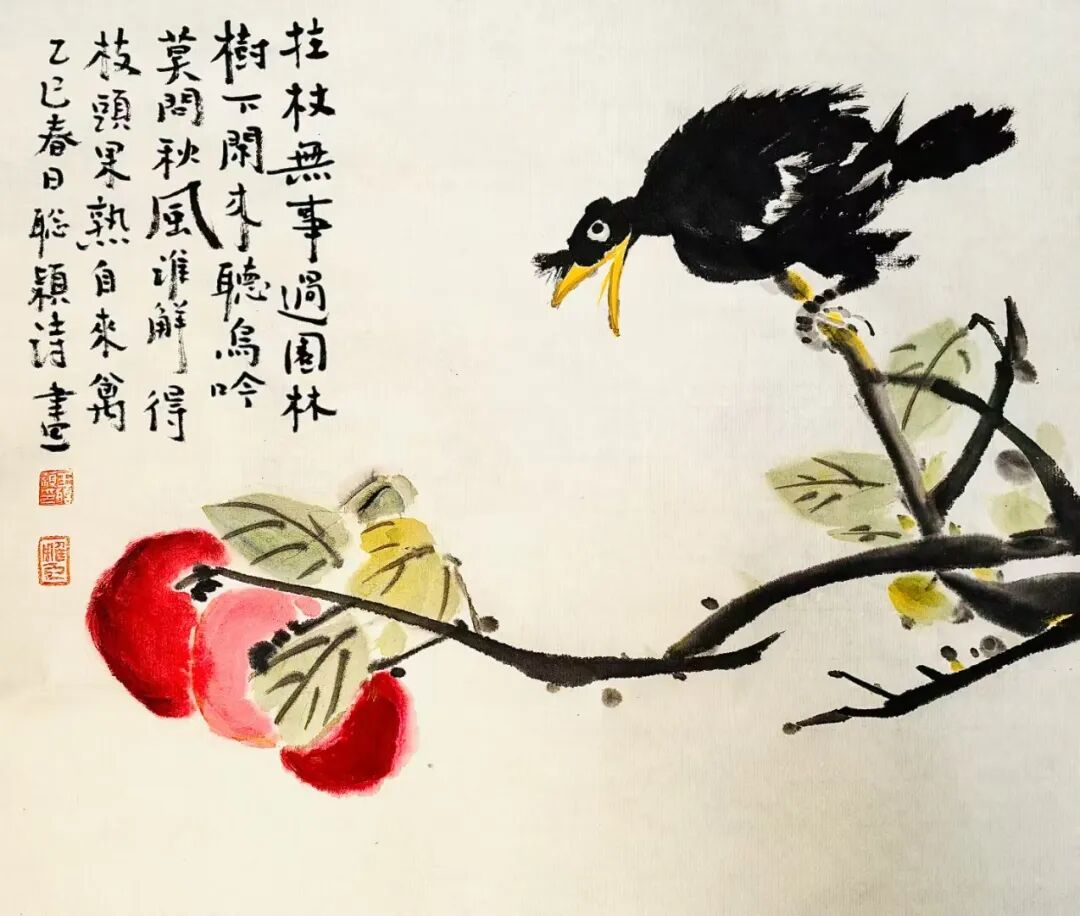 拄杖無事過園林
樹下閑來聽鳥吟
莫問秋風誰解得
枝頭果熟自來禽
乙巳春日聪穎詩畫